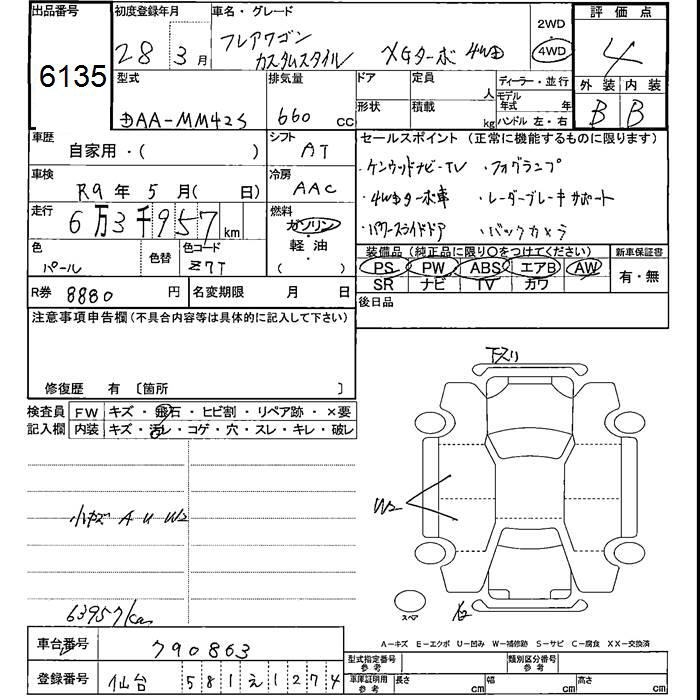 出品番号
6135
初度登録年月
28 3月
車名・グレード
フレアワゴン
カスタムスタイル XGターボ 4WD
2WD
4WD
評価点
4
外装 内装
B B
型式
DAA-MM42S
排気量
660 cc
ドア
形状
定員 人
積載 kg
ディーラー・並行
モデル年式 年
ハンドル 左・右
車歴
自家用・( )
シフト
AT
車検
R9年 5月( 日)
冷房
AAC
走行
6万3千957 km
燃料
ガソリン
・
軽油
・
( )
色
パール
色替
色コード
Z7T
R券 8880 円
名変期限 月 日
セールスポイント (正常に機能するものに限ります)
・ケンウッドナビ-TV ・フォグランプ
・4WDターボ車 ・レーダーブレーキサポート
・パワースライドドア ・バックカメラ
装備品(純正品に限り○をつけてください)
PS PW ABS エアB AW
SR ナビ TV カワ
新車保証書
有・無
後日品
注意事項申告欄(不具合内容等は具体的に記入して下さい)
修復歴 有 〔箇所 〕
検査員
記入欄
FW キズ・飛石・ヒビ割・リペア跡・×要
内装 キズ・汚レ・コゲ・穴・スレ・キレ・破レ
小キズ A U W2
63957km
下スリ
W2
スペア
A-キズ E-エクボ U-凹み W-補修跡 S-サビ C-腐食 XX-交換済
車台番号 790863
登録番号 仙台 581 え 1274
型式指定番号
参考
類別区分番号
参考
車庫証明用
参考
長さ cm 幅 cm 高さ cm